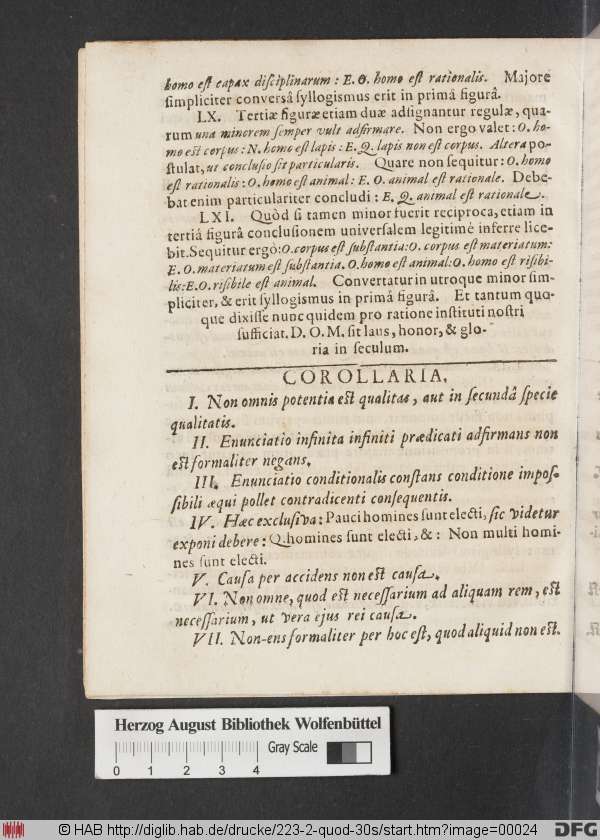 homo est capax disciplinarum: E. O. homo est rationalis. Majore
simpliciter conversâ syllogismus erit in primâ figurâ.
LX. Tertiæ figuræ etiam duæ adsignantur regulæ, qua-
rum una minorem semper vult adfirmare. Non ergo valet: O. ho-
mo est corpus: N. homo est lapis: E. Q. lapis non est corpus. Altera po-
stulat, ut conclusio sit particularis. Quare non sequitur: O. homo
est rationalis: O. homo est animal: E. O. animal est rationale. Debe-
bat enim particulariter concludi: E. Q. animal est rationale.
LXI. Quòd si tamen minor fuerit reciproca, etiam in
tertiâ figurâ conclusionem universalem legitimè inferre lice-
bit. Sequitur ergò: O. corpus est substantia: O. corpus est materiatum:
E. O. materiatum est substantia. O. homo est animal: O. homo est risibi-
lis: E. O. risibile est animal. Convertatur in utroque minor sim-
pliciter, & erit syllogismus in primâ figurâ. Et tantum quo-
que dixisse nunc quidem pro ratione instituti nostri
sufficiat. D. O. M. sit laus, honor, & glo-
ria in seculum.
COROLLARIA.
I. Non omnis potentia est qualitas, aut in secundâ specie
qualitatis.
II. Enunciatio infinita infiniti prædicati adfirmans non
est formaliter negans.
III. Enunciatio conditionalis constans conditione impos-
sibili æqui pollet contradicenti consequentis.
IV. Hæc exclusiva: Pauci homines sunt electi, sic videtur
exponi debere: Q. homines sunt electi, &: Non multi homi-
nes sunt electi.
V. Causa per accidens non est causa.
VI. Non omne, quod est necessarium ad aliquam rem, est
necessarium, ut vera ejus rei causa.
VII. Non-ens formaliter per hoc est, quod aliquid non est.
Herzog August Bibliothek Wolfenbüttel
Gray Scale
0 1 2 3 4
© HAB http://diglib.hab.de/drucke/223-2-quod-30s/start.htm?image=00024
DFG